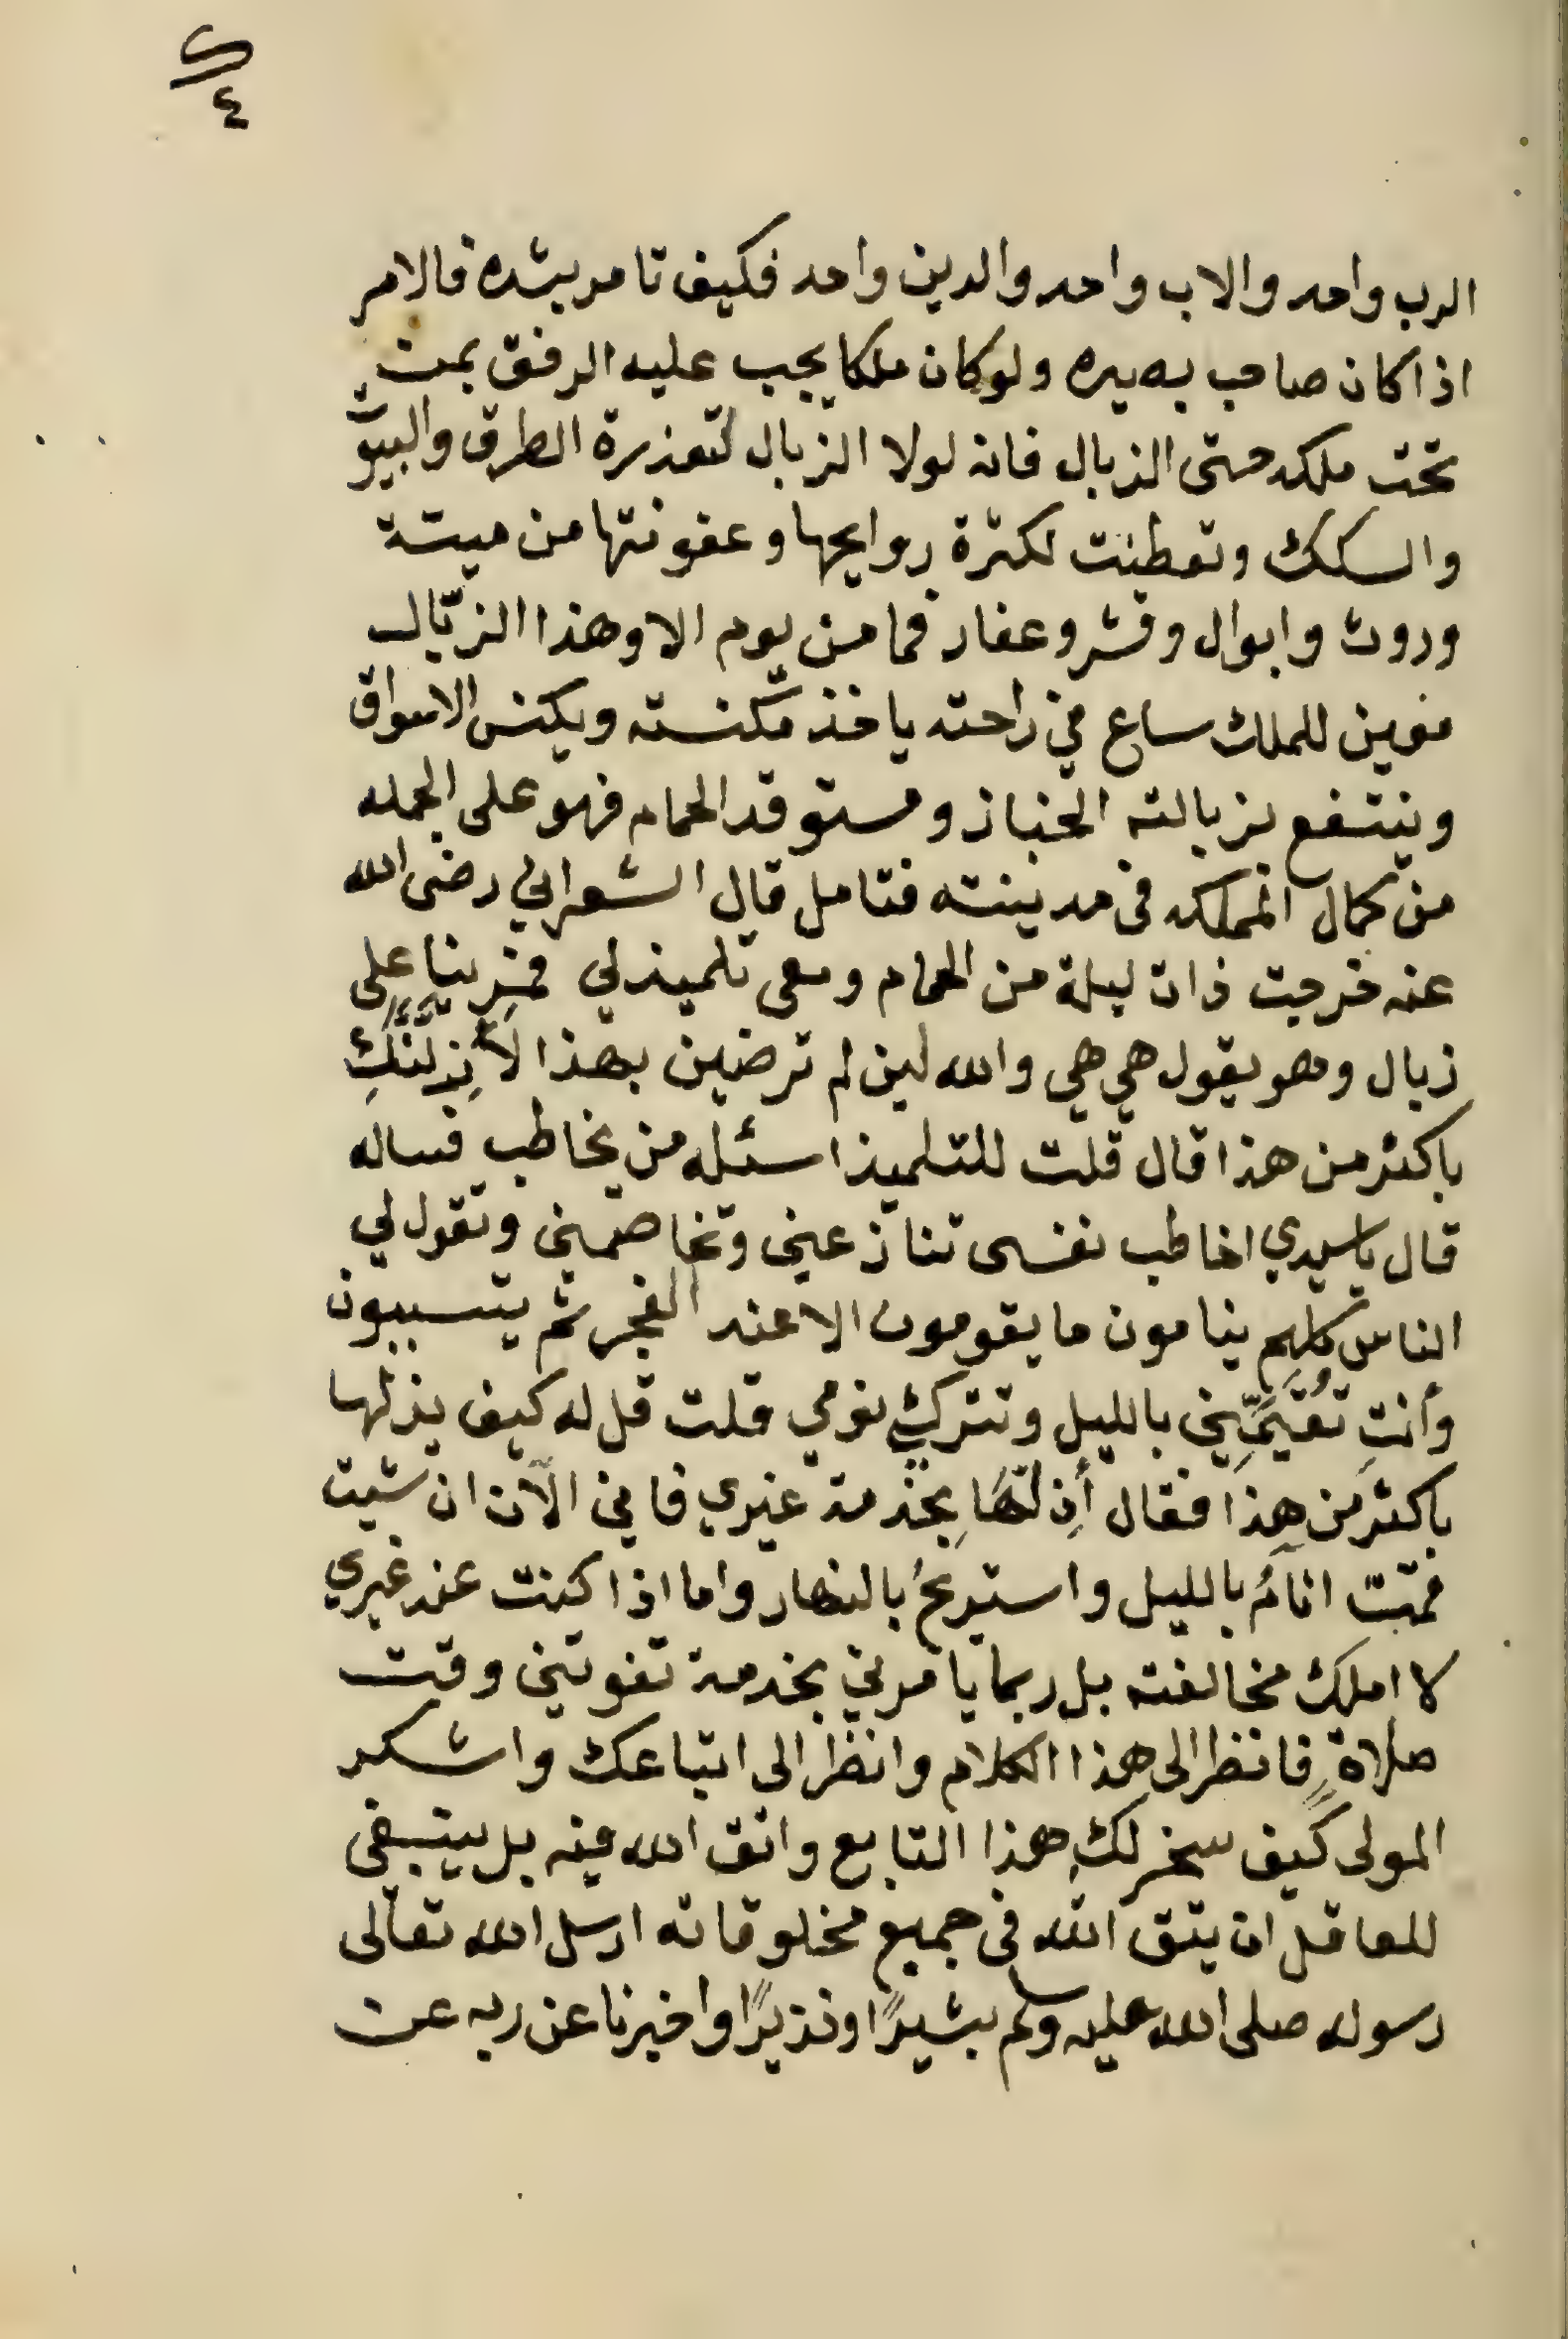 الرب واحد والاب واحد والدين واحد فكيف تامر بشده فالامر
اذا كان صاحب بصيره ولو كان ملكا يجب عليه الرفق بمن
تحت ملكه حتى الزبال فانه لولا الزبال لتعذرة الطرق والبيوت
والسكك وتعطنت لكثرة روايحها وعفونتها من ميتة
وروث وابوال وقشر وعفار فما من يوم الا وهذا الزبّال
معين للملك ساع في راحته ياخذ مكنسته ويكنس الاسواق
وينتفع بزبالته الخباز ومستوقد الحمام فهو على الجمله
من كمال المملكه في مدينته فتامل قال الشعراني رضى الله
عنه خرجت ذات ليلة من الحمام ومعى تلميذ لي فمرينا على
زبال وهو يقول هي هي والله لين لم ترضين بهذا لَأُذِلَّنَّكِ
باكثر من هذا قال قلت للتلميذ اسئله من يخاطب فساله
قال ياسيدي اخاطب نفسى تنازعني وتخاصمني وتقول لي
الناس كلهم ينامون ما يقومون الا عند الفجر ثم يتسببون
وأنتِ تُقيمّني بالليل وتتركي نومي قلت قل له كيف يذلها
باكثر من هذا فقال أذلّها بخدمة غيري فاني الآن ان شيت
قمت انامُ بالليل واستريحُ بالنهار واما اذا كنت عند غيري
لا املك مخالفته بل ربما يامرني بخدمة تفوتني وقت
صلاةٍ فانظر الى هذا الكلام وانظر الى اتباعك واشكر
المولى كيف سخر لك هذا التابع واتق الله فيه بل ينبغى
للعاقل ان يتق الله في جميع مخلوقاته ارسل الله تعالى
رسوله صلى الله عليه وسلم بشيرًا ونذيرًا واخبرنا عن ربه عن